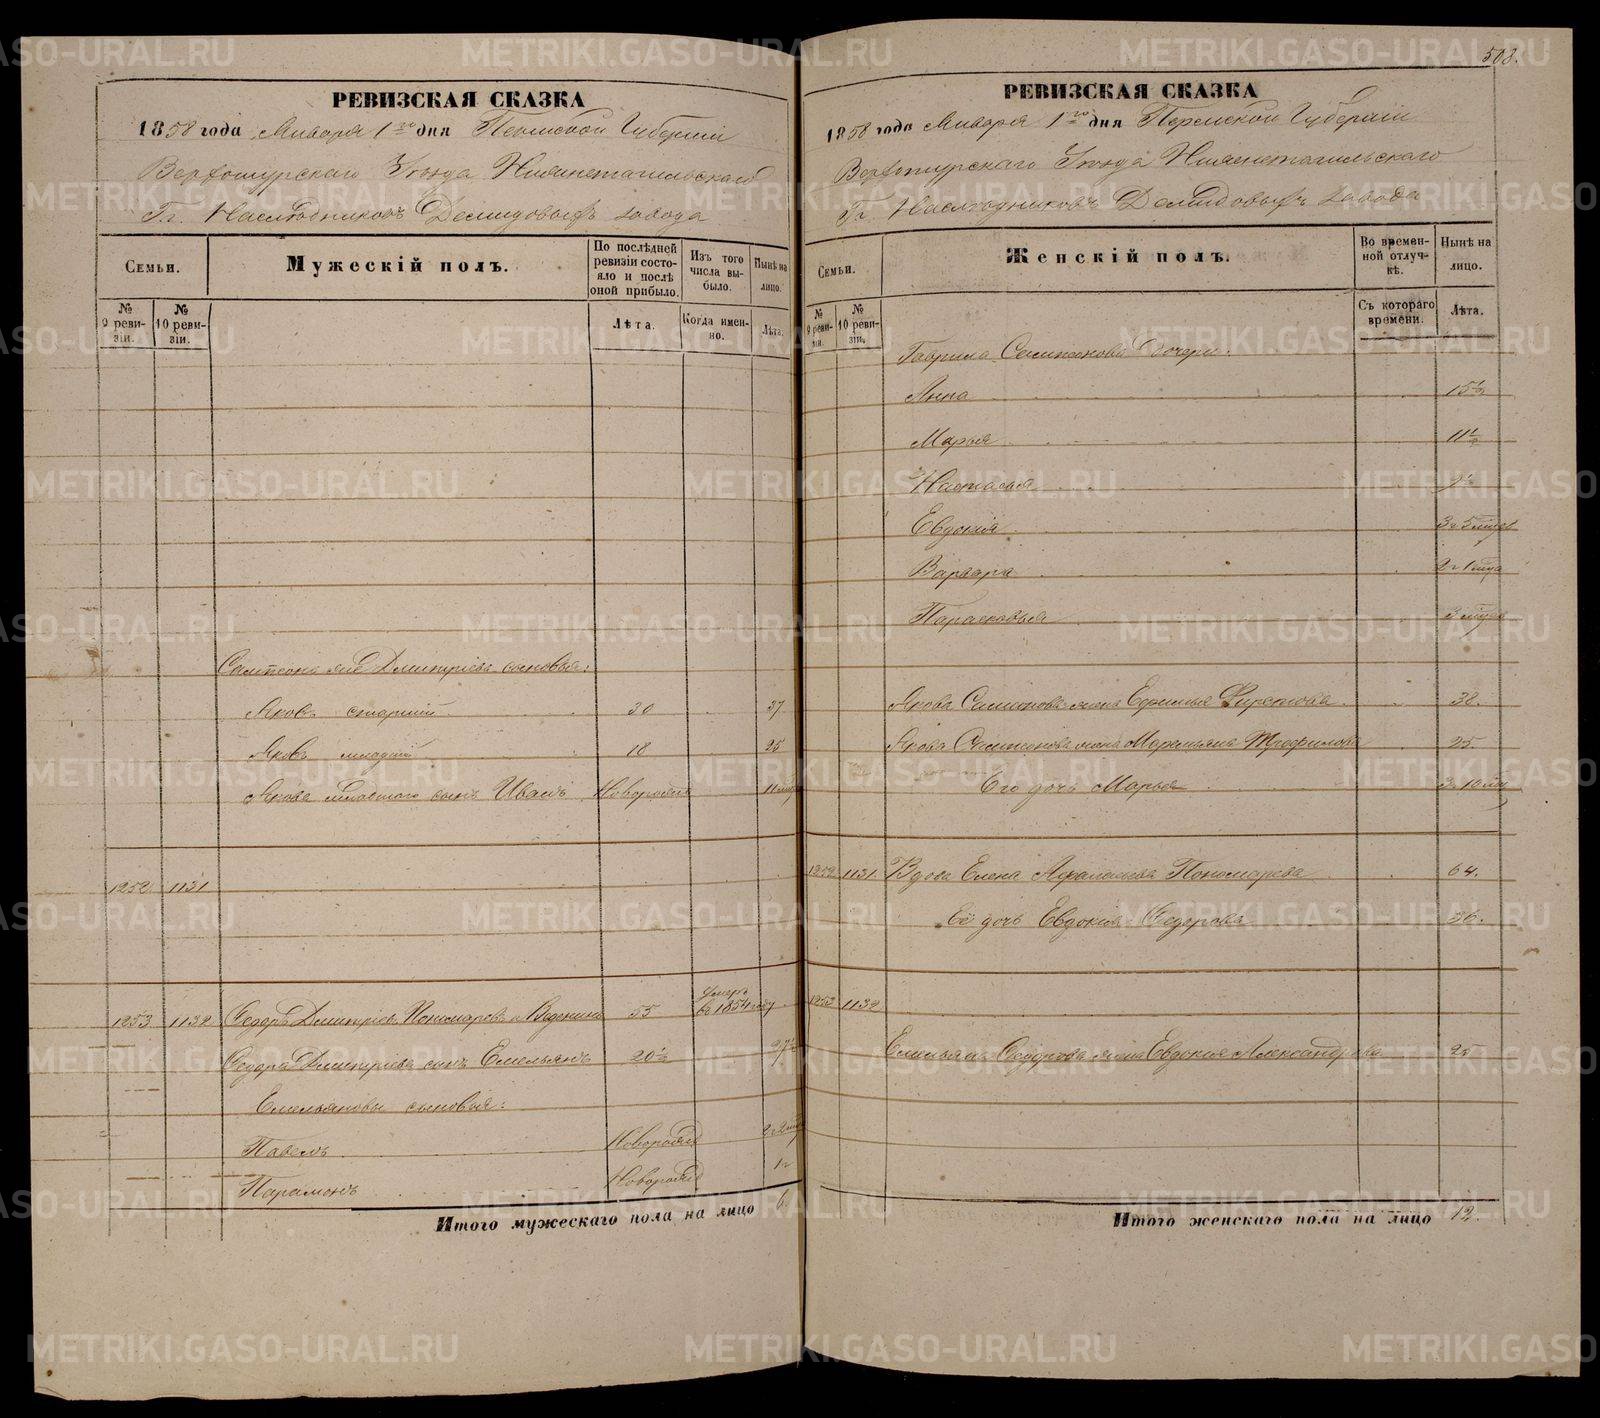 РЕВИЗСКАЯ СКАЗКА
1858 года Января 1го дня Пермской Губерніи
Верхотурскаго Уѣзда Нижнетагильскаго
Гг. Наслѣдниковъ Демидовыхъ завода
Семьи.
Мужескій полъ.
По послѣдней ревизіи состояло и послѣ оной прибыло.
Изъ того числа выбыло.
Нынѣ на лицо.
№ 9 ревизіи.
№ 10 ревизіи.
Лѣта.
Когда именно.
Лѣта.
Дмитріева сыновья:
Яковъ старшій 30 37
Яковъ младшій 18 25
Якова младшаго сынъ Иванъ Новорожд
1252 1131
1253 1132 Федоръ Дмитріевъ Пономаревъ 55 умеръ въ 1854 году
Федора Дмитріева сынъ Емельянъ 20½ 27½
Емельяновы сыновья:
Павелъ Новорожд
Парамонъ Новорожд 1г
Итого мужескаго пола на лицо 6
508.
РЕВИЗСКАЯ СКАЗКА
1858 года Января 1го дня Пермской Губерніи
Верхотурскаго Уѣзда Нижнетагильскаго
Гг. Наслѣдниковъ Демидовыхъ завода
Семьи.
Женскій полъ.
Во временной отлучкѣ.
Нынѣ на лицо.
№ 9 ревизіи.
№ 10 ревизіи.
Съ котораго времени.
Лѣта.
Гаврила Самсонова дочери:
Анна 15½
Марья 11½
Настасья
Евдокія 3г 5 мцев
Варвара 2г 1 мца
Парасковья 3 мцев
Якова Самсонова жена Ефимья 38.
Якова Самсонова жена Маремьяна Трофимова 25.
Его дочь Марья 3г 10 мц
1252 1131 Вдова Елена Афанасьева Пономарева 64.
Её дочь Евдокія Федорова 36.
1253 1132
Емельяна Федорова жена Евдокия Александрова 25
Итого женскаго пола на лицо 12.
METRIKI.GASO-URAL.RU